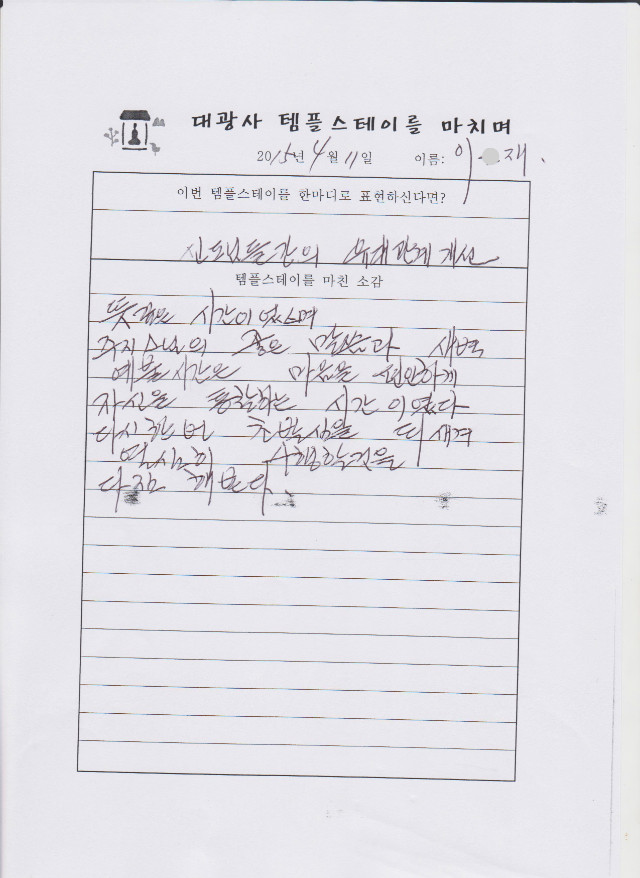 대광사 템플스테이를 마치며
2015년 4월 11일 이름: 이 재.
이번 템플스테이를 한마디로 표현하신다면?
신도님들간의 유대관계 개선
템플스테이를 마친 소감
뜻깊은 시간이였으며
주지스님의 좋은 말씀과 새벽
예불시간은 마음을 편안하게
자신을 통찰하는 시간이였다
다시한번 초발심을 되새겨
열심히 수행할것을
다짐해본다.